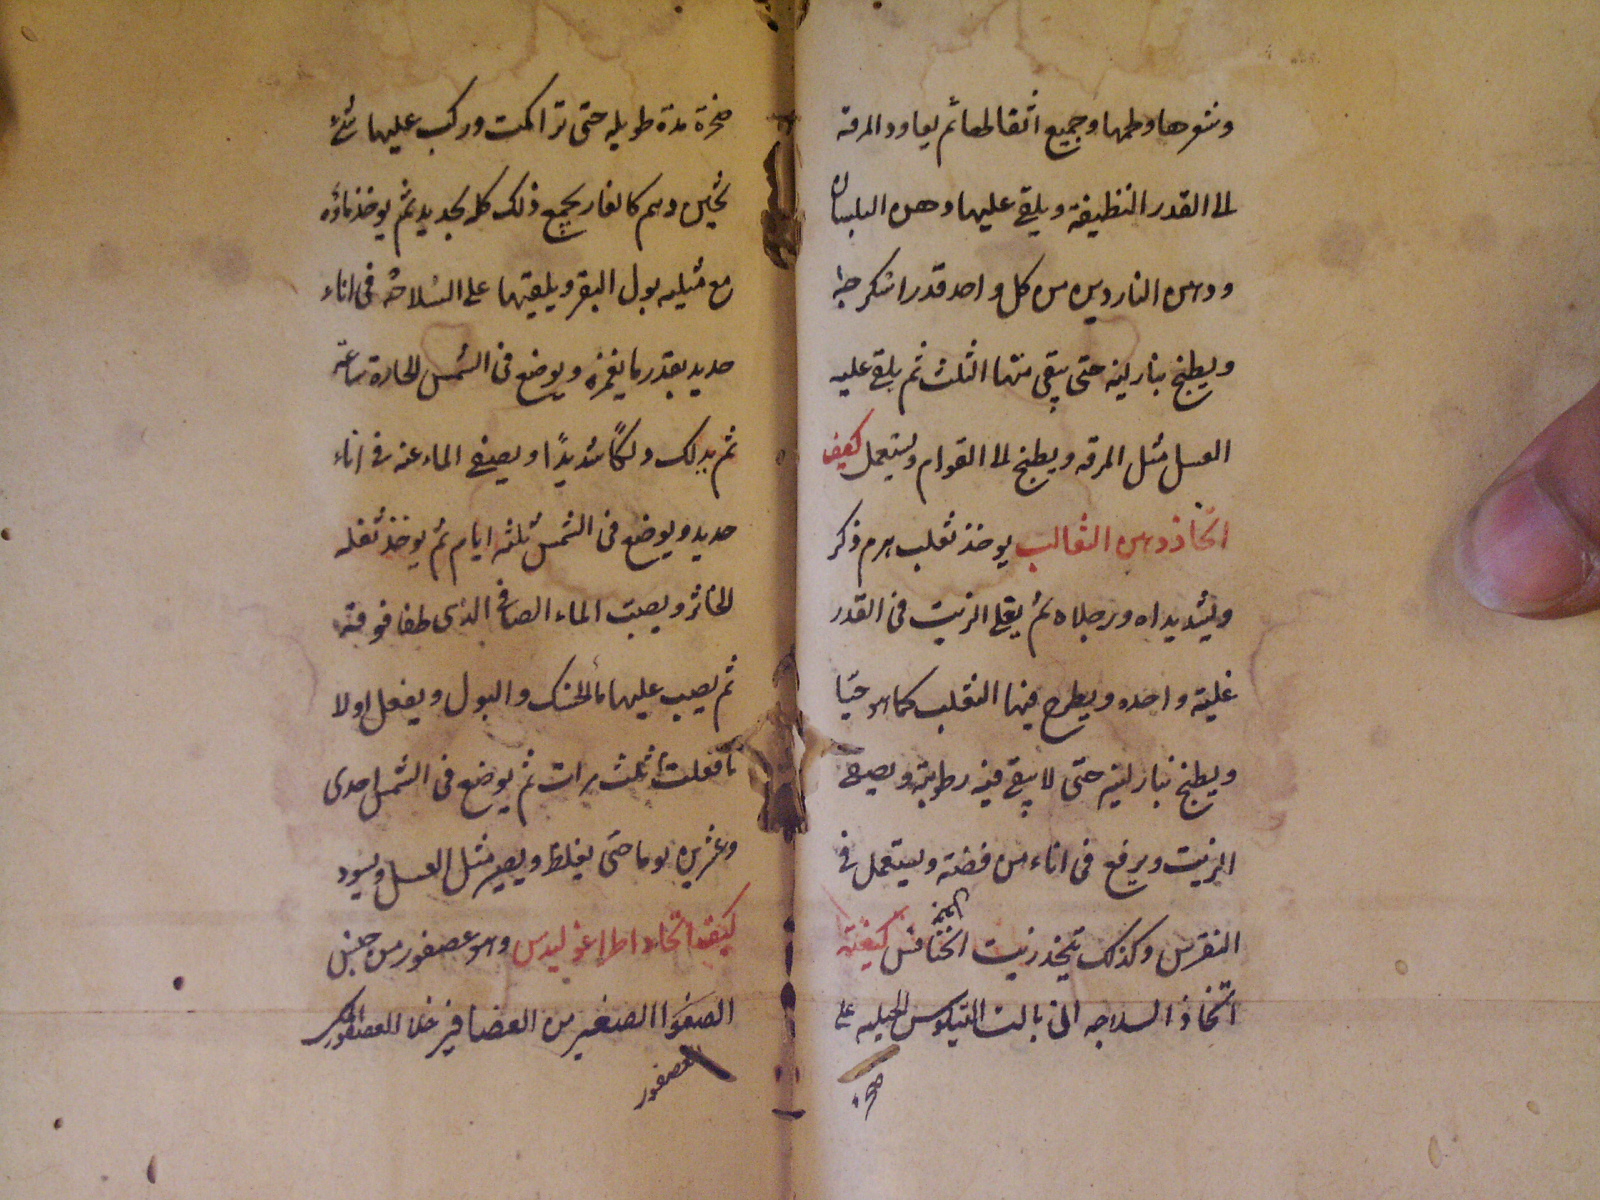 وشعرها ولحمها وجميع اثقالها ثم يعاود المرقة
الى القدر النظيفة ويلقى عليها دهن البلسان
ودهن الناردين من كل واحد قدر اسكرجة
ويطبخ بنار لينه حتى يبقى منها الثلث ثم يلقى عليه
العسل مثل المرقه ويطبخ الى القوام ويستعمل كيف
اتخاذ دهن الثعالب يوخذ ثعلب هرم ذكر
ويشد يداه ورجلاه ثم يغلى الزيت فى القدر
غلية واحده ويطرح فيها الثعلب كما هو حيا
ويطبخ بنار لينه حتى لا يبقى فيه رطوبة ويصفى
الزيت ويرفع فى اناء من فضة ويستعمل فى
النقرس وكذلك يتخذ زيت الخنافس كيفية
اتخاذ السلاجه التيوس الجبليه على
صخرة
صخرة مدة طويله حتى تراكمت وركب عليها شئ
ثخين دسم كالغار يجمع ذلك كله بحديد ثم يوخذ ماؤه
مع مثليه بول البقر ويلقيها على السلاجة فى اناء
حديد بقدر ما يغمره ويوضع فى الشمس الحارة ساعة
ثم يدلك دلكًا شديدًا ويصفى الماء عنه فى اناء
حديد ويوضع فى الشمس ثلثه ايام ثم يوخذ ثفله
الخاثر ويصب الماء الصافى الذى طفا فوقه
ثم يصب عليها ماء الحسك والبول ويفعل اولا
ما فعلت ثلث مرات ثم يوضع فى الشمس احدى
وعشرين يوما حتى يغلظ ويصير مثل العسل ويسود
كيفية اتخاذ وهو عصفور من جنس
الصغير من العصافير خلا العصفور
العصفور